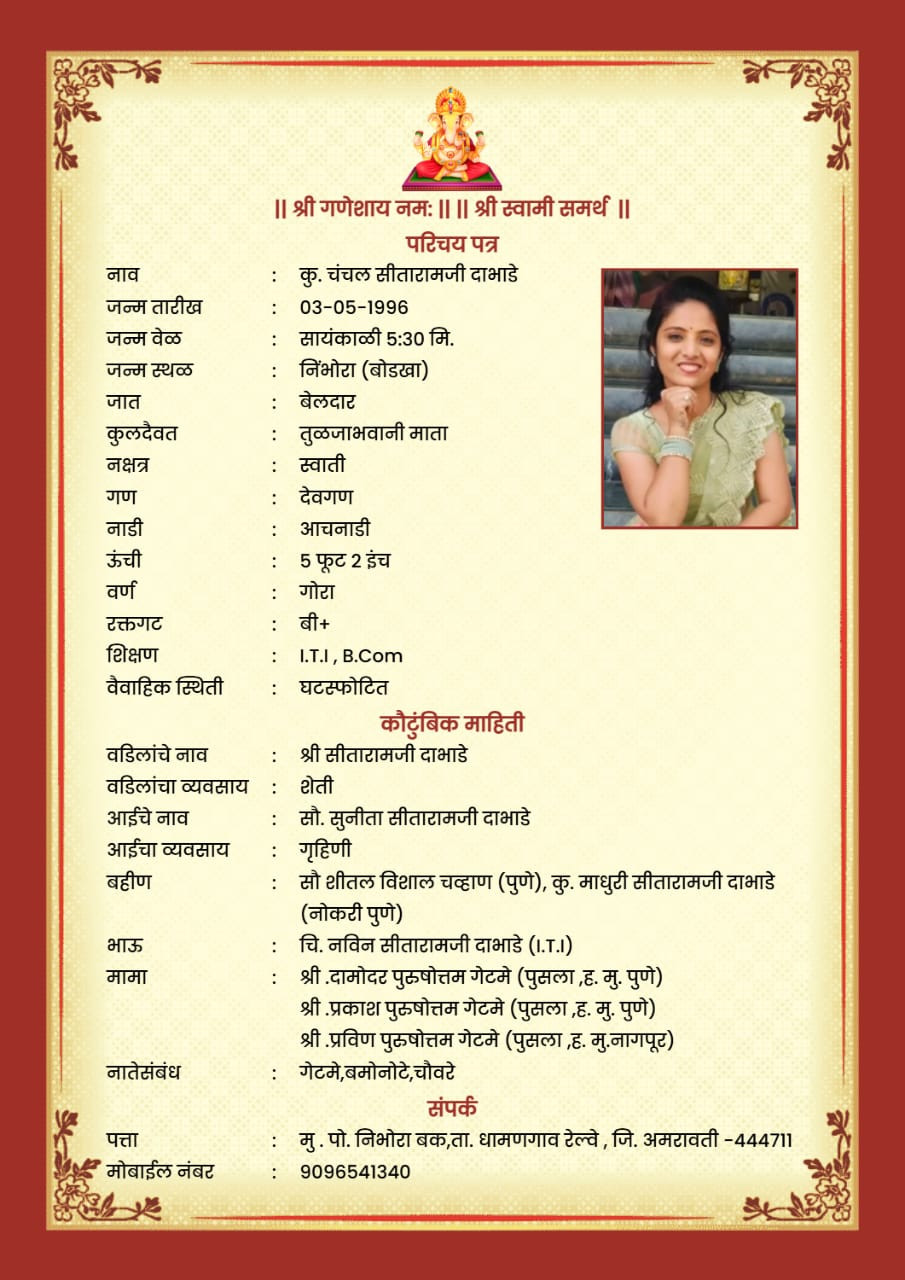 || श्री गणेशाय नम: || || श्री स्वामी समर्थ ||
परिचय पत्र
नाव : कु. चंचल सीतारामजी दाभाडे
जन्म तारीख : 03-05-1996
जन्म वेळ : सायंकाळी 5:30 मि.
जन्म स्थळ : निंभोरा (बोडखा)
जात : बेलदार
कुलदैवत : तुळजाभवानी माता
नक्षत्र : स्वाती
गण : देवगण
नाडी : आचनाडी
ऊंची : 5 फूट 2 इंच
वर्ण : गोरा
रक्तगट : बी+
शिक्षण : I.T.I , B.Com
वैवाहिक स्थिती : घटस्फोटित
कौटुंबिक माहिती
वडिलांचे नाव : श्री सीतारामजी दाभाडे
वडिलांचा व्यवसाय : शेती
आईचे नाव : सौ. सुनीता सीतारामजी दाभाडे
आईचा व्यवसाय : गृहिणी
बहीण : सौ शीतल विशाल चव्हाण (पुणे), कु. माधुरी सीतारामजी दाभाडे
(नोकरी पुणे)
भाऊ : चि. नविन सीतारामजी दाभाडे (I.T.I)
मामा : श्री .दामोदर पुरुषोत्तम गेटमे (पुसला ,ह. मु. पुणे)
श्री .प्रकाश पुरुषोत्तम गेटमे (पुसला ,ह. मु. पुणे)
श्री .प्रविण पुरुषोत्तम गेटमे (पुसला ,ह. मु.नागपूर)
नातेसंबंध : गेटमे,बमोनोटे,चौवरे
संपर्क
पत्ता : मु . पो. निभोरा बक,ता. धामणगाव रेल्वे , जि. अमरावती -444711
मोबाईल नंबर : 9096541340